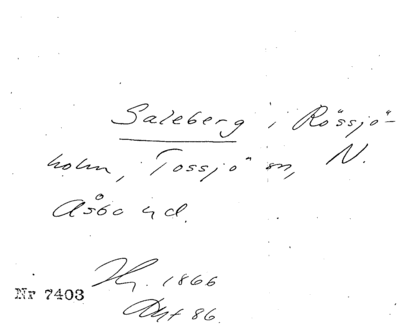 Saleberg i Rössjö-
holm, Tossjö sn, N.
Åsbo hd.
1866
Nr 7403
86